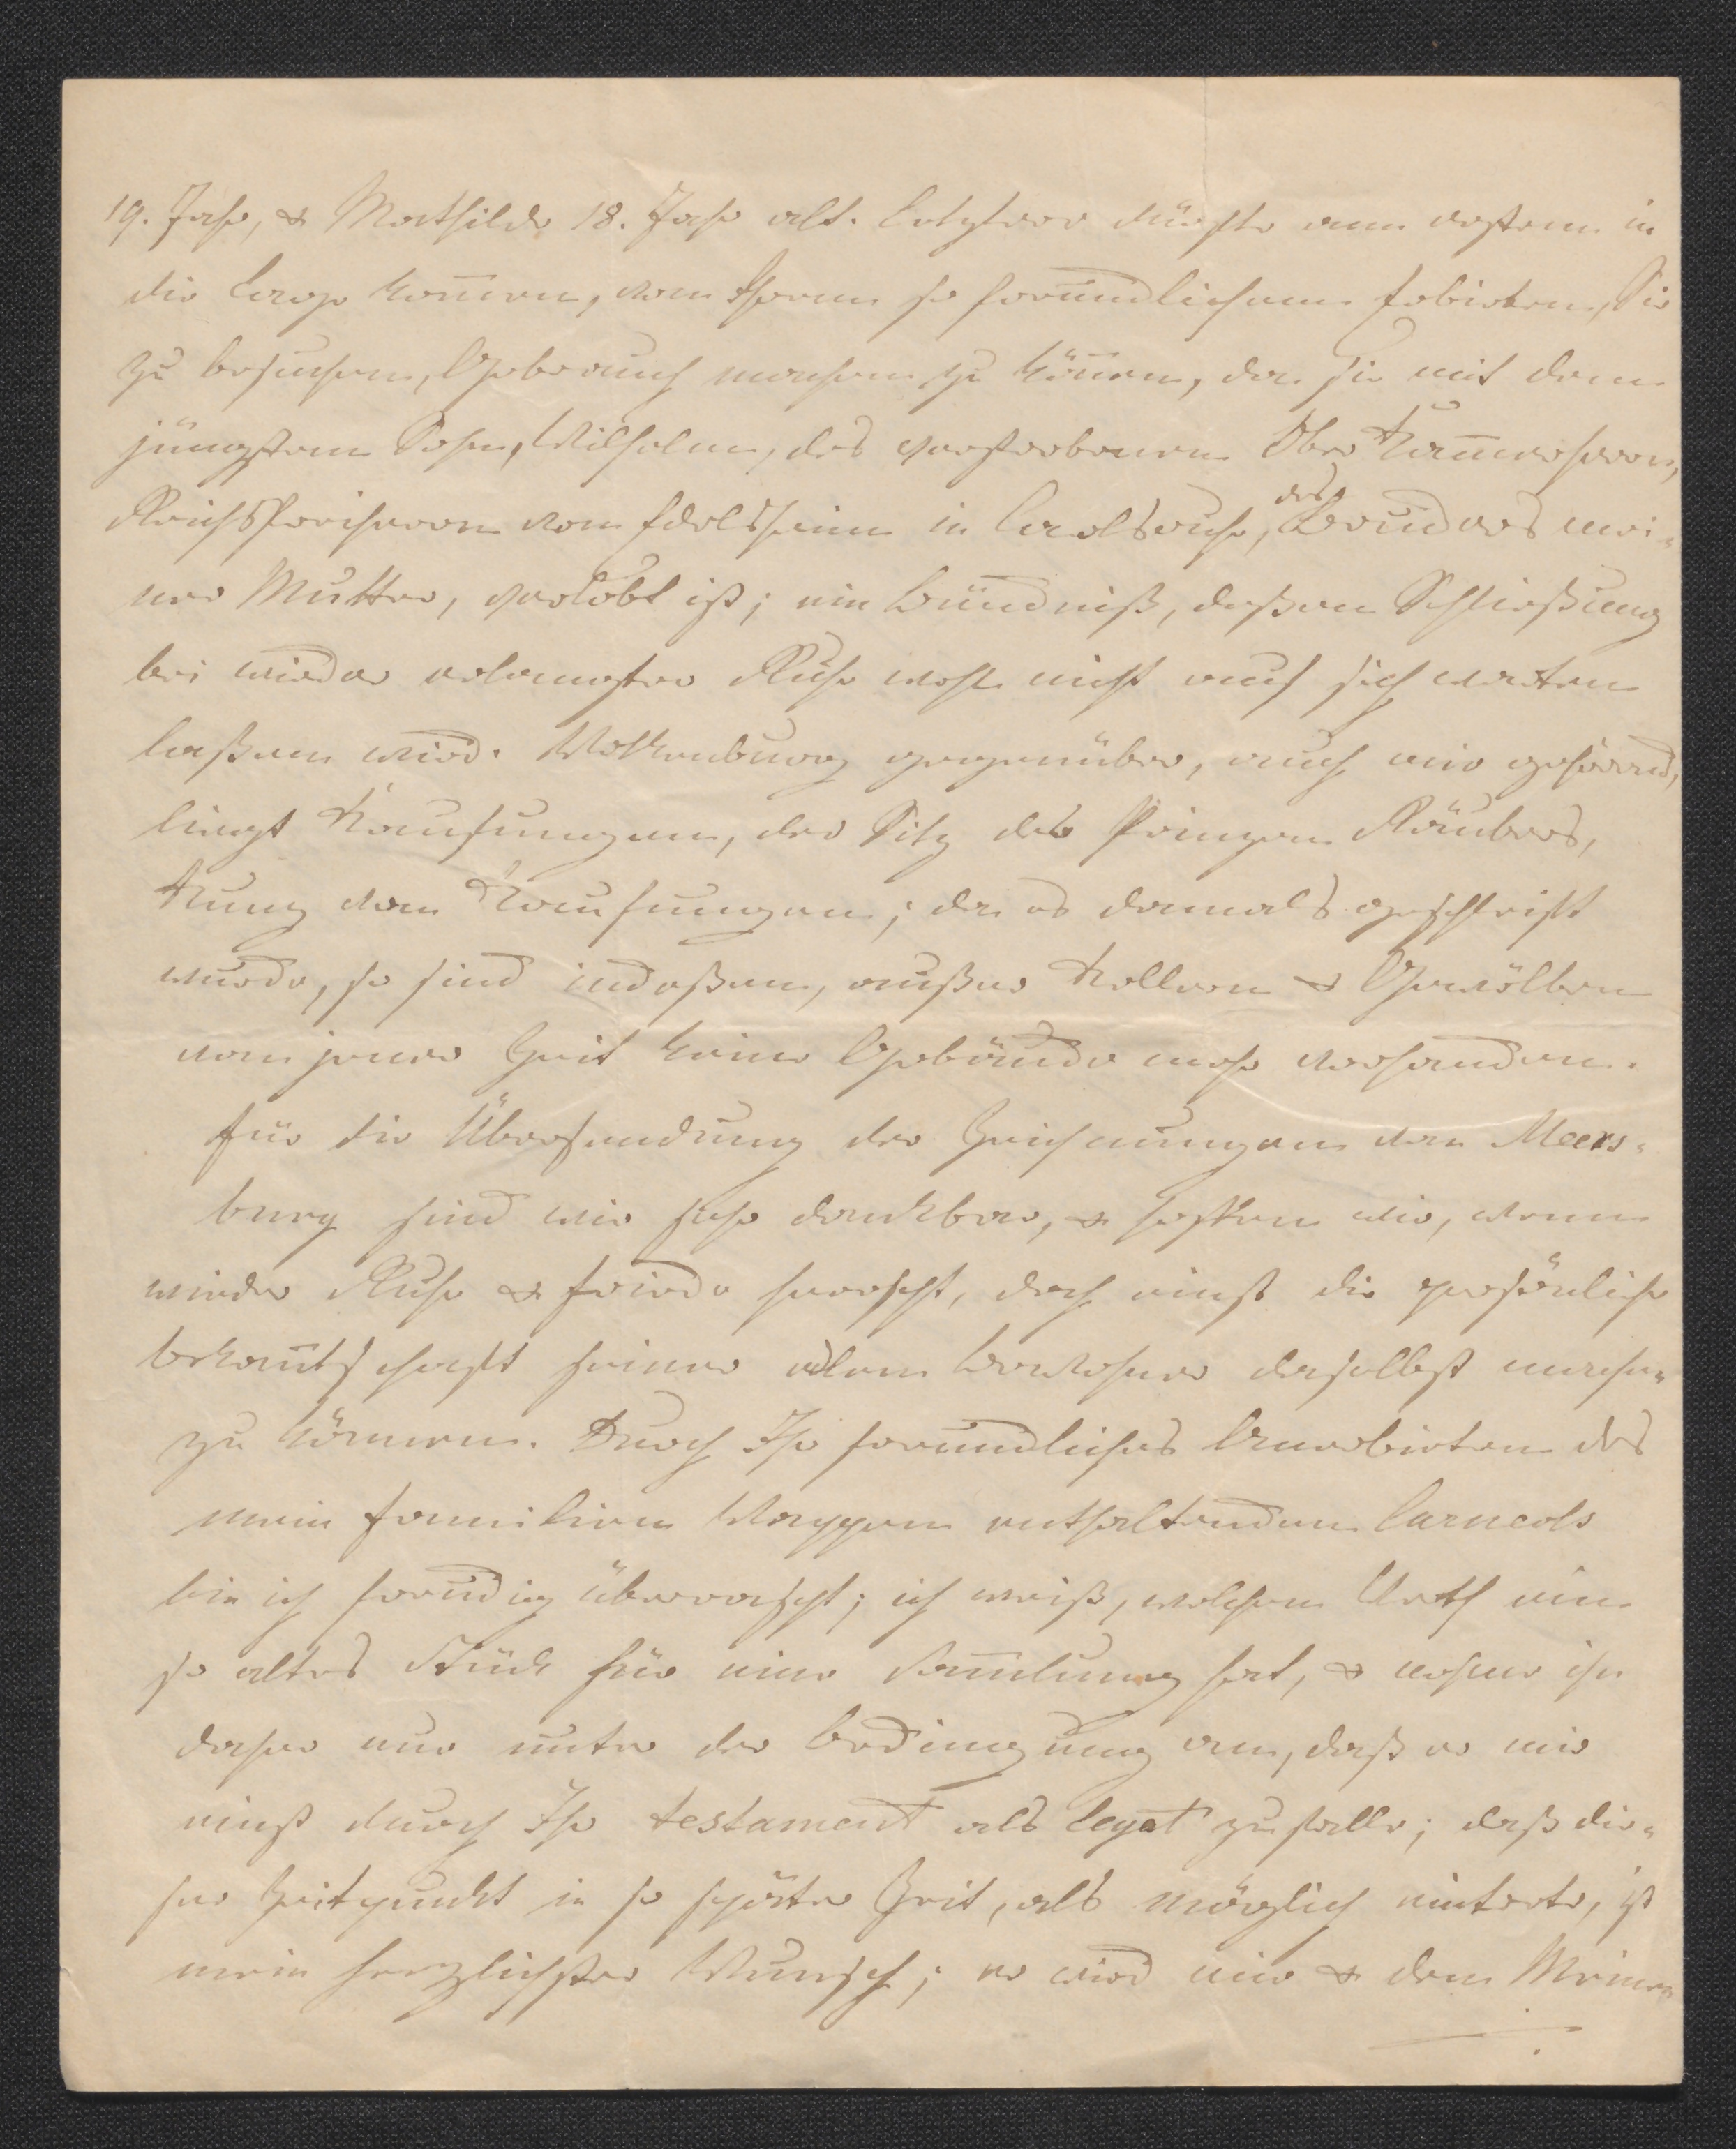 19. Jahr, & Mathilde 18. Jahr alt. Letztere dürfte am ersten in
die Lage kom̅en, von Ihrem so freundlichem Erbieten, Sie
zu besuchen, Gebrauch machen zu kön̅en, da sie mit dem
jüngsten Sohn, Wilhelm, des verstorbenen Oberkam̅erherrn,
Reichsfreiherrn von Edelsheim in Carlsruhe, des Bruders mei-
ner Mutter, verlobt ist; ein Bündniß, deßen Schließung
bei wieder erlangter Ruhe wohl nicht auf sich warten
laßen wird. Wolkenburg gegenüber, auch mir gehörend,
liegt Kaufungen, der Sitz des Prinzen Räubers,
Kunz von Kaufungen; da es damals geschleift
wurde, so sind indeßen, außer Kellern & Gewölben
von jener Zeit keine Gebäude mehr vorhanden.
Für die Übersendung der Zeichnungen von Meers-
burg sind wir sehr dankbar, & hoffen wir, wenn
wieder Ruhe & Friede herrscht, doch einst die persönliche
Bekan̅tschaft seiner edlen Bewohner daselbst machen
zu können. Durch Ihr freundliches Anerbieten des
mein Familien Wappen enthaltenden Carneols
bin ich freudig überrascht; ich weiß, welchen Werth ein
so altes Stück für eine Sam̅lung hat, & nehme ihn
daher nur unter der Bedingung an, daß er mir
einst durch Ihr testament als legat zufalle; daß die-
ser Zeitpunkt in so später Zeit, als möglich eintrete, ist
mein herzlichster Wunsch; er wird mir & den Meinen